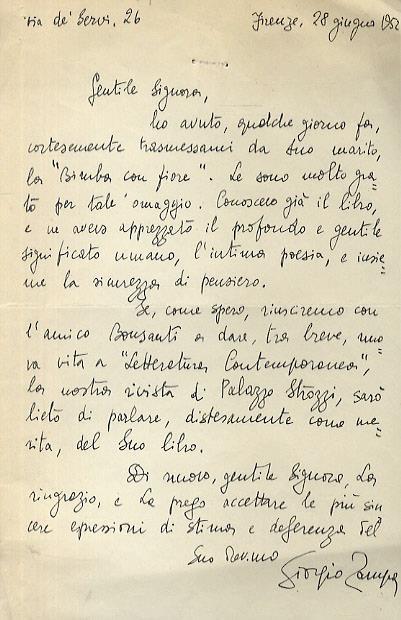 Via de' Servi, 26 Firenze, 28 giugno 1952
Gentile Signora,
ho avuto, qualche giorno fa,
cortesemente trasmessami da Suo marito,
la "Bimba con fiore". Le sono molto gra=
to per tale omaggio. Conoscevo già il libro,
e ne avevo apprezzato il profondo e gentile
significato umano, l'intima poesia, e insie=
me la sicurezza di pensiero.
Se, come spero, riusciremo con
l'amico Bonsanti a dare, tra breve, nuo
va vita a "Letteratura Contemporanea",
la nostra rivista di Palazzo Strozzi, sarò
lieto di parlare, distesamente come me=
rita, del Suo libro.
Di nuovo, gentile Signora, La
ringrazio, e La prego accettare le più sin
cere espressioni di stima e deferenza del
Suo Dev.mo
Giorgio Zampa